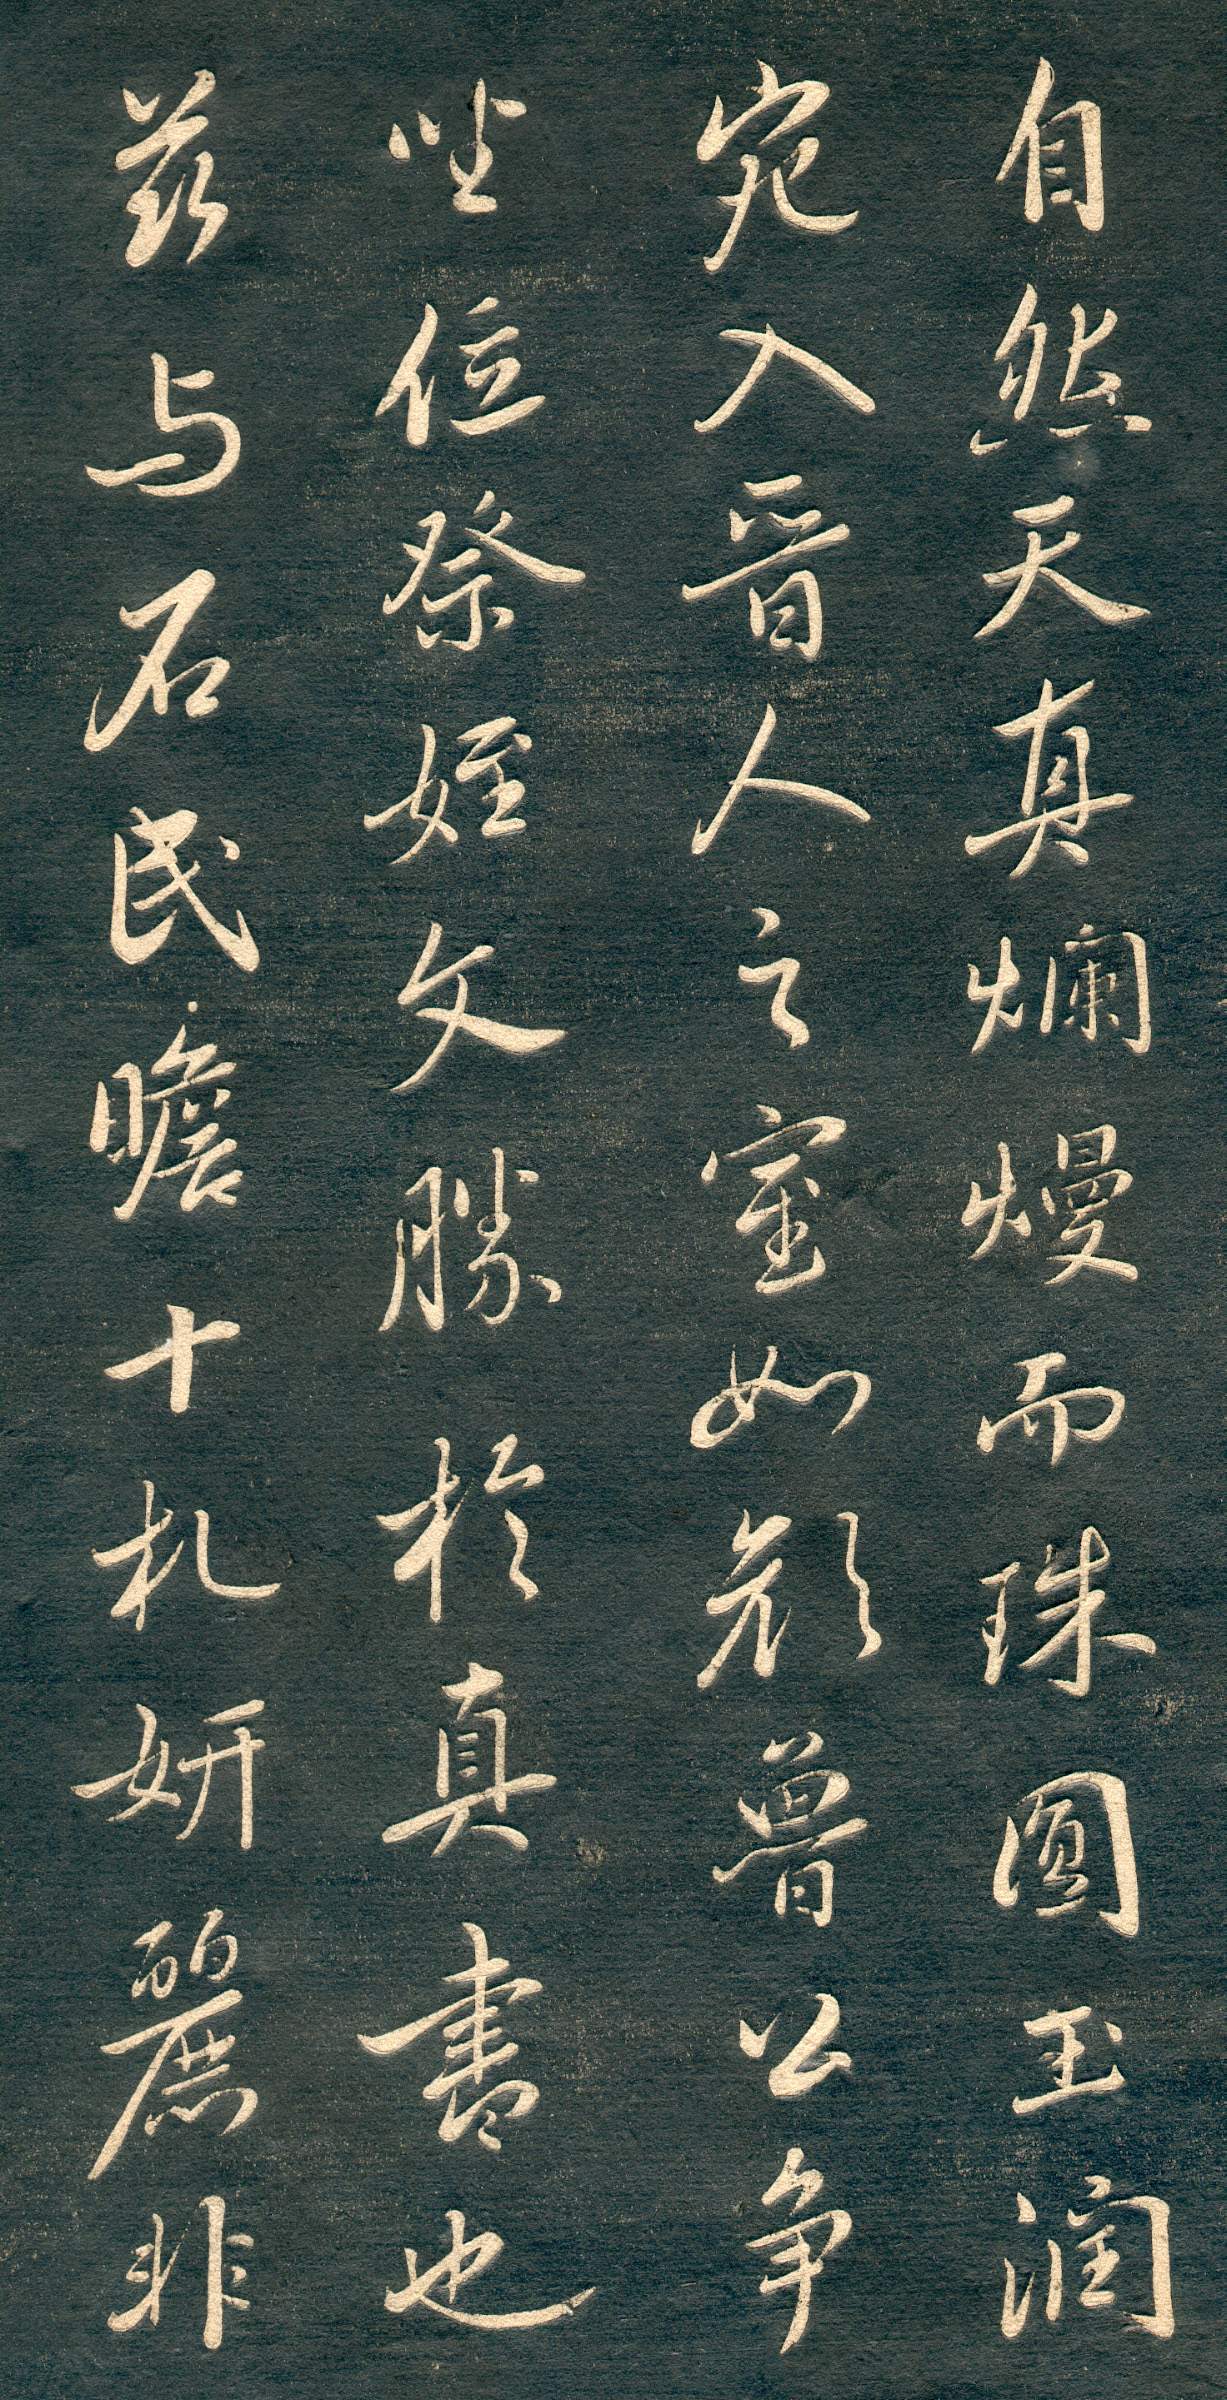 自然天真爛熳而珠圓玉潤
宛入晉人之室如顏魯公争
坐位祭姪文勝於真書也
茲与石民瞻十札妍麗非